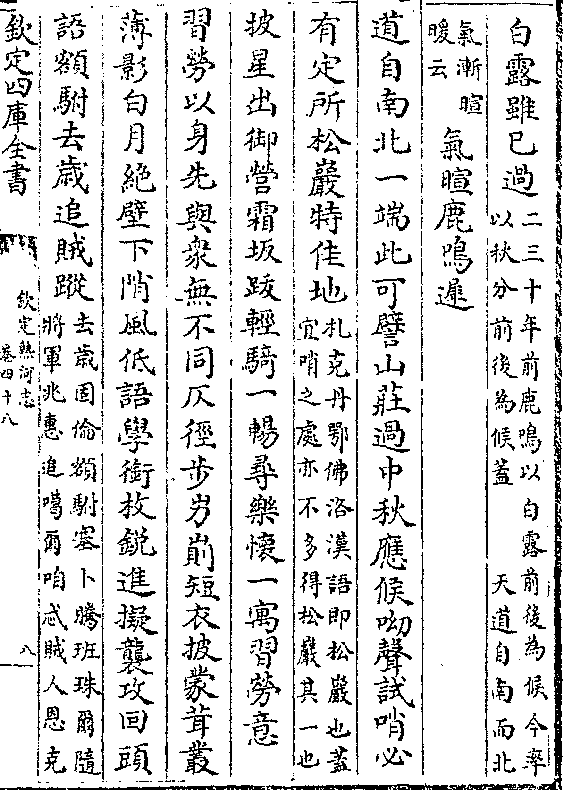 白露雖已過
二三十年前鹿鳴以白露前後為候今率
以秋分前後為候蓋天道自南而北
氣漸暄
暖云
氣暄鹿鳴遲
道自南北一端此可譬山莊過中秋應候呦聲試哨必
有定所松巖特佳地
札克丹鄂佛洛漢語即松巖也蓋
宜哨之處亦不多得松巖其一也
披星出御營霜坂跋輕騎一暢尋樂懷一寓習勞意
習勞以身先與衆無不同仄徑步屴崱短衣披蒙茸叢
薄影白月絶壁下陗風低語學銜枚銳進擬襲攻回頭
語額駙去歲追賊蹤
去歲固倫額駙塞卜騰班珠爾隨
將軍兆惠追噶爾咱忒賊人恩克
欽定四庫全書
欽定熱河志
卷四十八
八